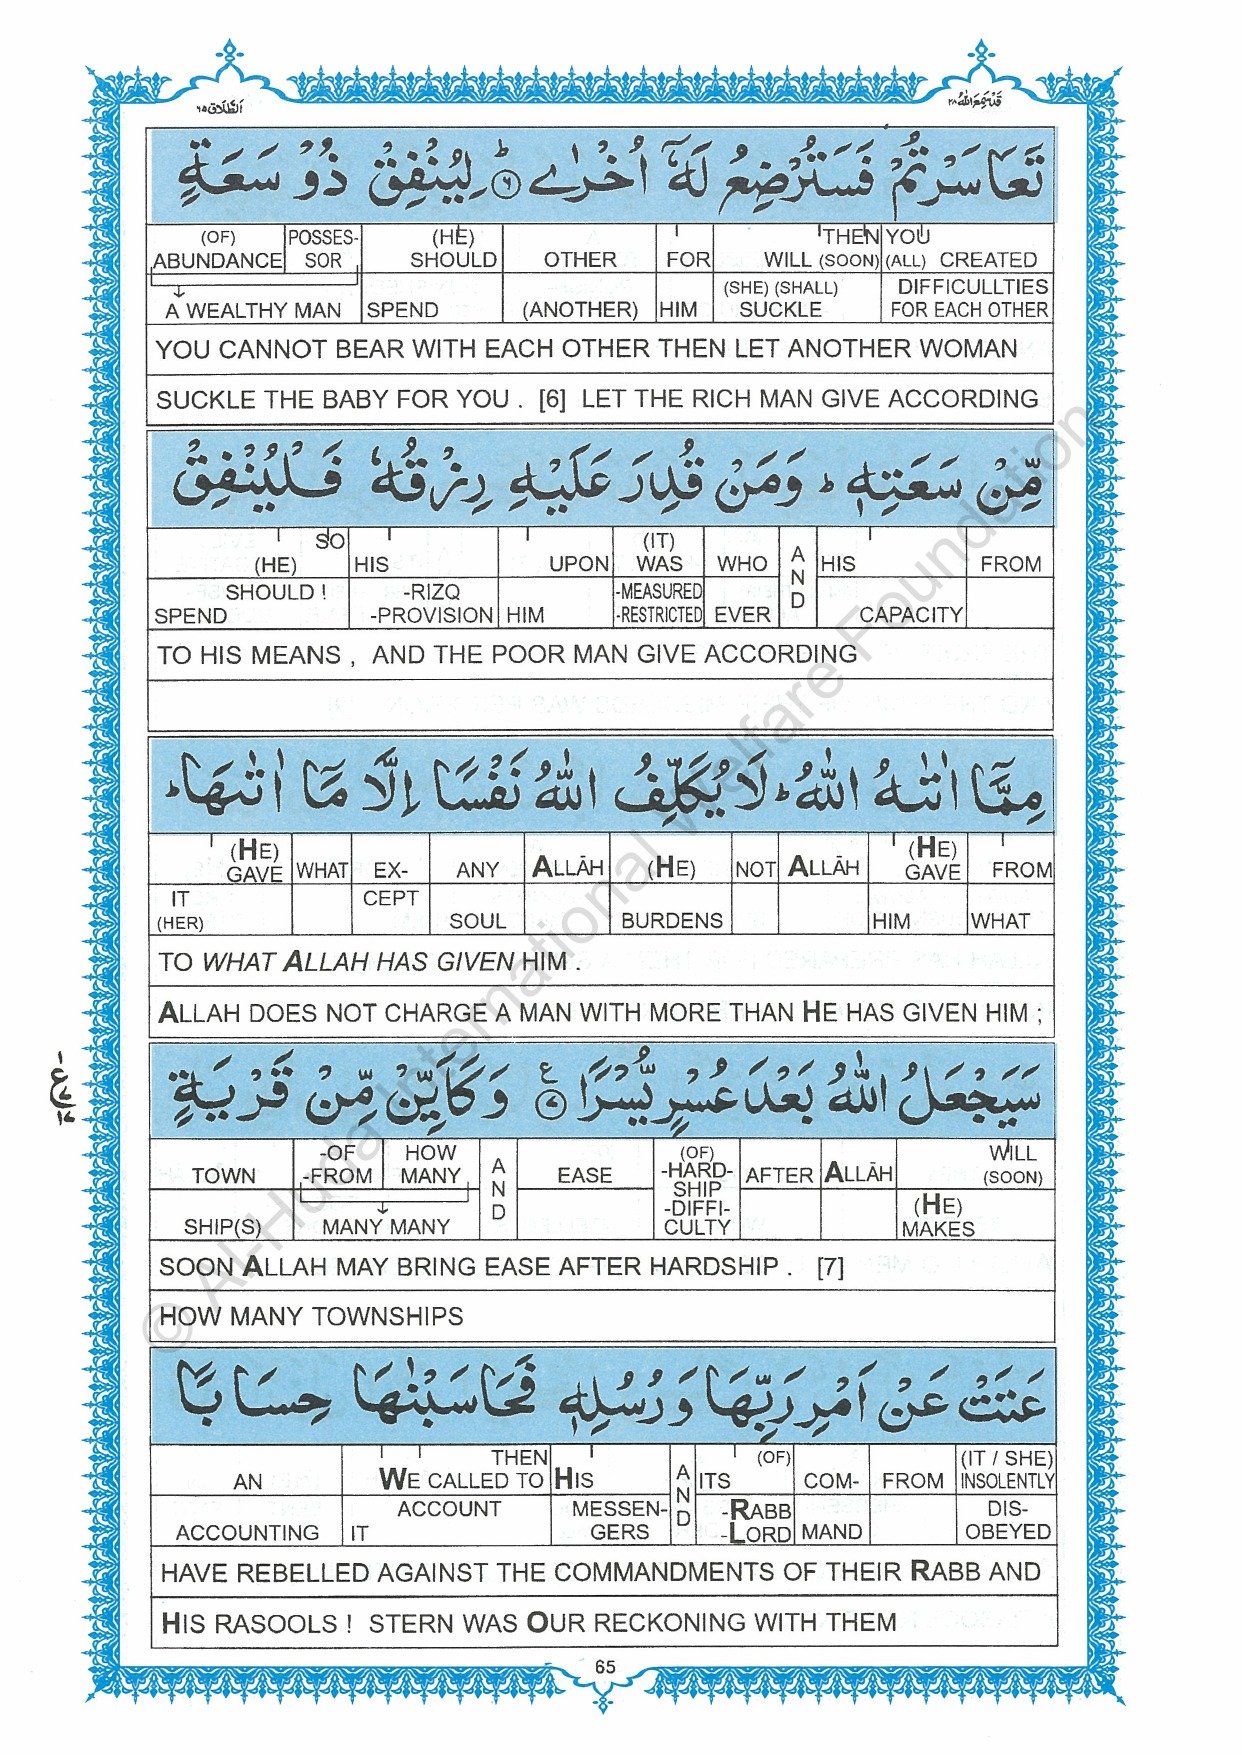 اَلطَّلَاق ٦٥
قَدْ سَمِعَ اللّٰهُ ٢٨
تَعَاسَرْتُمْ فَسَتُرْضِعُ لَهٗۤ اُخْرٰى ؕ ٦ لِيُنْفِقْ ذُوْ سَعَةٍ
(OF) POSSES- (HE) THEN YOU
ABUNDANCE SOR SHOULD OTHER FOR WILL (SOON) (ALL) CREATED
(SHE) (SHALL) DIFFICULLTIES
A WEALTHY MAN SPEND (ANOTHER) HIM SUCKLE FOR EACH OTHER
YOU CANNOT BEAR WITH EACH OTHER THEN LET ANOTHER WOMAN
SUCKLE THE BABY FOR YOU . [6] LET THE RICH MAN GIVE ACCORDING
مِّنْ سَعَتِهٖ ؕ وَمَنْ قُدِرَ عَلَيْهِ رِزْقُهٗ فَلْيُنْفِقْ
SO (IT) A
(HE) HIS UPON WAS WHO N HIS FROM
SHOULD ! -RIZQ -MEASURED D
SPEND -PROVISION HIM -RESTRICTED EVER CAPACITY
TO HIS MEANS , AND THE POOR MAN GIVE ACCORDING
مِمَّاۤ اٰتٰىهُ اللّٰهُ ؕ لَا يُكَلِّفُ اللّٰهُ نَفْسًا اِلَّا مَاۤ اٰتٰىهَا ؕ
(HE) (HE)
GAVE WHAT EX- ANY ALLĀH (HE) NOT ALLĀH GAVE FROM
IT CEPT
(HER) SOUL BURDENS HIM WHAT
TO WHAT ALLAH HAS GIVEN HIM .
ALLAH DOES NOT CHARGE A MAN WITH MORE THAN HE HAS GIVEN HIM ;
سَيَجْعَلُ اللّٰهُ بَعْدَ عُسْرٍ يُّسْرًا ٧ ع وَكَاَيِّنْ مِّنْ قَرْيَةٍ
١
ع
٧
١٧
-OF HOW A (OF) WILL
TOWN -FROM MANY N EASE -HARD- AFTER ALLĀH (SOON)
D SHIP (HE)
-DIFFI-
SHIP(S) MANY MANY CULTY MAKES
SOON ALLAH MAY BRING EASE AFTER HARDSHIP . [7]
HOW MANY TOWNSHIPS
عَتَتْ عَنْ اَمْرِ رَبِّهَا وَرُسُلِهٖ فَحَاسَبْنٰهَا حِسَابًا
THEN A (OF) (IT / SHE)
AN WE CALLED TO HIS N ITS COM- FROM INSOLENTLY
ACCOUNT MESSEN- D -RABB DIS-
ACCOUNTING IT GERS -LORD MAND OBEYED
HAVE REBELLED AGAINST THE COMMANDMENTS OF THEIR RABB AND
HIS RASOOLS ! STERN WAS OUR RECKONING WITH THEM
65
© Al-Huda International Welfare Foundation